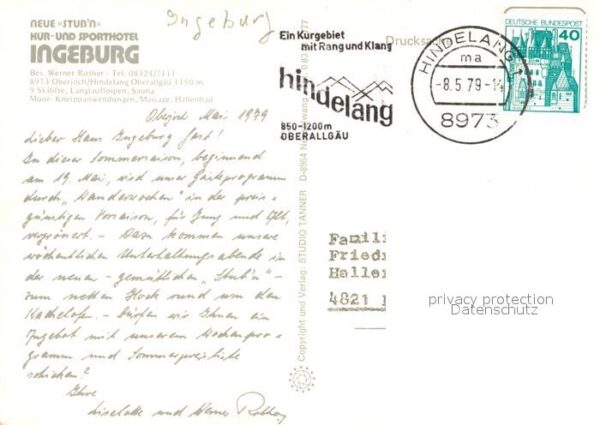 NEUE »STUB'N«
KUR- UND SPORTHOTEL
INGEBURG
Bes. Werner Rother · Tel: 08324/7111
8973 Oberjoch/Hindelang Oberallgäu 1150 m
9 Skilifte, Langlaufloipen, Sauna
Mass. Kneippanwendungen, Massage, Hallenbad
Ingeburg
Oberjoch Mai 1979
Lieber Haus Ingeburg Gast!
In dieser Sommersaison, beginnend
am 19. Mai, wird unser Gästeprogramm
durch „Wanderwochen" in der preis-
günstigen Vorsaison, für Jung und Alt,
vergrößert. – Dazu kommen unsere
wöchentlichen Unterhaltungsabende in
der neuen - gemütlichen „Stub'n" -
zum netten Hock rund um den
Kachelofen. - Dürfen wir Ihnen ein
Angebot mit unserem Wochenpro-
gramm und Sommerpreisliste
schicken?
Ihre
Liselotte und Werner Rother
Copyright und Verlag: STUDIO TANNER D-8964 Nesselwang
Ein Kurgebiet
mit Rang und Klang
hindelang
850-1200m
OBERALLGÄU
Drucksache
HINDELANG 1
ma
-8.5.79-14
8973
DEUTSCHE BUNDESPOST
40
Famili
Friedr
Haller
4821
privacy protection
Datenschutz